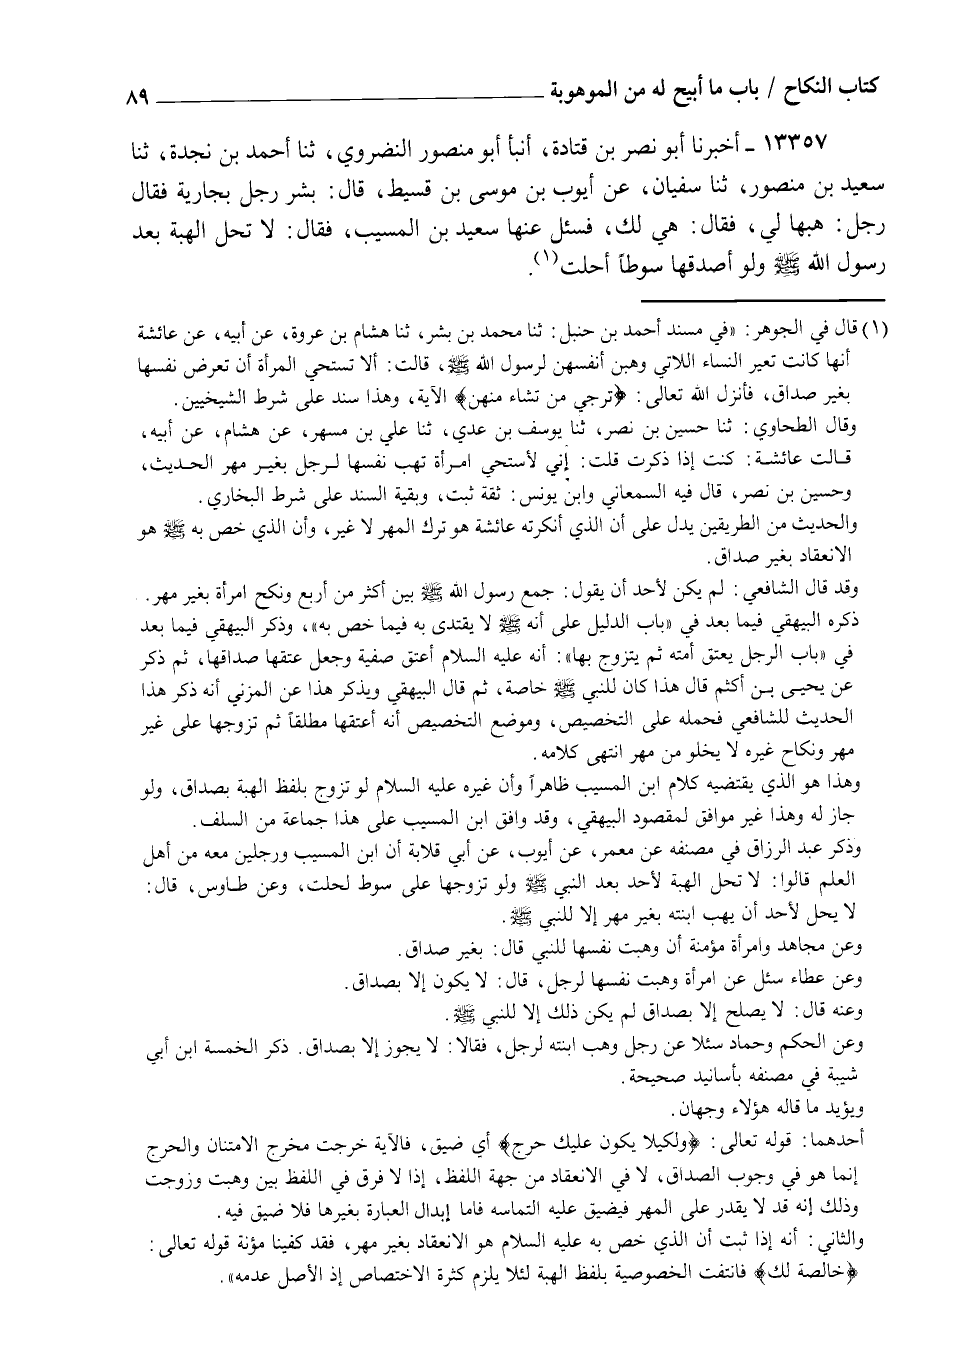 كتاب النكاح / باب ما أبيح له من الموهوبة ــــــــــــ ٨٩
١٣٣٥٧ ـ أخبرنا أبو نصر بن قتادة، أنبأ أبو منصور النضروي، ثنا أحمد بن نجدة، ثنا
سعيد بن منصور، ثنا سفيان، عن أيوب بن موسى بن قسيط، قال: بشر رجل بجارية فقال
رجل: هبها لي، فقال: هي لك، فسئل عنها سعيد بن المسيب، فقال: لا تحل الهبة بعد
رسول الله ﷺ ولو أصدقها سوطاً أحلت(١).
(١) قال في الجوهر: «في مسند أحمد بن حنبل: ثنا محمد بن بشر، ثنا هشام بن عروة، عن أبيه، عن عائشة
أنها كانت تعير النساء اللاتي وهبن أنفسهن لرسول الله ﷺ، قالت: ألا تستحي المرأة أن تعرض نفسها
بغير صداق، فأنزل الله تعالى: ﴿ترجي من تشاء منهن﴾ الآية، وهذا سند على شرط الشيخيين.
وقال الطحاوي: ثنا حسين بن نصر، ثنا يوسف بن عدي، ثنا علي بن مسهر، عن هشام، عن أبيه،
قالت عائشة: كنت إذا ذكرت قلت: إني لأستحي امرأة تهب نفسها لرجل بغير مهر الحديث،
وحسين بن نصر، قال فيه السمعاني وابن يونس: ثقة ثبت، وبقية السند على شرط البخاري.
والحديث من الطريقين يدل على أن الذي أنكرته عائشة هو ترك المهر لا غير، وأن الذي خص به ﷺ هو
الانعقاد بغير صداق.
وقد قال الشافعي: لم يكن لأحد أن يقول: جمع رسول الله ﷺ بين أكثر من أربع ونكح امرأة بغير مهر.
ذكره البيهقي فيما بعد في «باب الدليل على أنه ﷺ لا يقتدى به فيما خص به»، وذكر البيهقي فيما بعد
في «باب الرجل يعتق أمته ثم يتزوج بها»: أنه عليه السلام أعتق صفية وجعل عتقها صداقها، ثم ذكر
عن يحيى بن أكثم قال هذا كان للنبي ﷺ خاصة، ثم قال البيهقي ويذكر هذا عن المزني أنه ذكر هذا
الحديث للشافعي فحمله على التخصيص، وموضع التخصيص أنه أعتقها مطلقاً ثم تزوجها على غير
مهر ونكاح غيره لا يخلو من مهر انتهى كلامه.
وهذا هو الذي يقتضيه كلام ابن المسيب ظاهراً وأن غيره عليه السلام لو تزوج بلفظ الهبة بصداق، ولو
جاز له وهذا غير موافق لمقصود البيهقي، وقد وافق ابن المسيب على هذا جماعة من السلف.
وذكر عبد الرزاق في مصنفه عن معمر، عن أيوب، عن أبي قلابة أن ابن المسيب ورجلين معه من أهل
العلم قالوا: لا تحل الهبة لأحد بعد النبي ﷺ ولو تزوجها على سوط لحلت، وعن طاوس، قال:
لا يحل لأحد أن يهب ابنته بغير مهر إلا للنبي ﷺ.
وعن مجاهد وامرأة مؤمنة أن وهبت نفسها للنبي قال: بغير صداق.
وعن عطاء سئل عن امرأة وهبت نفسها لرجل، قال: لا يكون إلا بصداق.
وعنه قال: لا يصلح إلا بصداق لم يكن ذلك إلا للنبي ﷺ.
وعن الحكم وحماد سئلا عن رجل وهب ابنته لرجل، فقالا: لا يجوز إلا بصداق. ذكر الخمسة ابن أبي
شيبة في مصنفه بأسانيد صحيحة.
ويؤيد ما قاله هؤلاء وجهان.
أحدهما: قوله تعالى: ﴿ولكيلا يكون عليك حرج﴾ أي ضيق، فالآية خرجت مخرج الامتنان والحرج
إنما هو في وجوب الصداق، لا في الانعقاد من جهة اللفظ، إذا لا فرق في اللفظ بين وهبت وزوجت
وذلك إنه قد لا يقدر على المهر فيضيق عليه التماسه فاما إبدال العبارة بغيرها فلا ضيق فيه.
والثاني: أنه إذا ثبت أن الذي خص به عليه السلام هو الانعقاد بغير مهر، فقد كفينا مؤنة قوله تعالى:
﴿خالصة لك﴾ فانتفت الخصوصية بلفظ الهبة لئلا يلزم كثرة الاختصاص إذ الأصل عدمه».